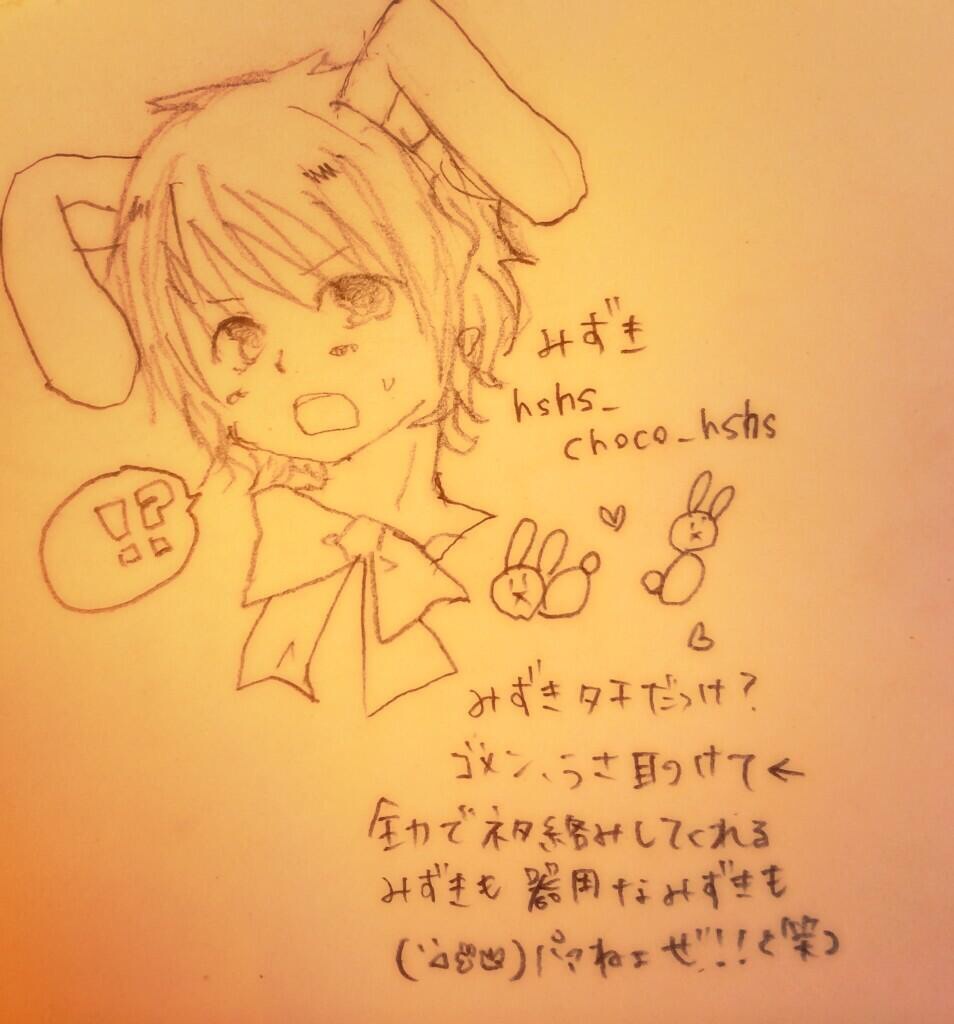 !?
みずき
hshs_
choco_hshs
みずきタチだっけ?
ゴメン、うさ耳つけて←
全力でネタ絡みしてくれる
みずきも器用なみずきも
パねェぜ!!(笑)